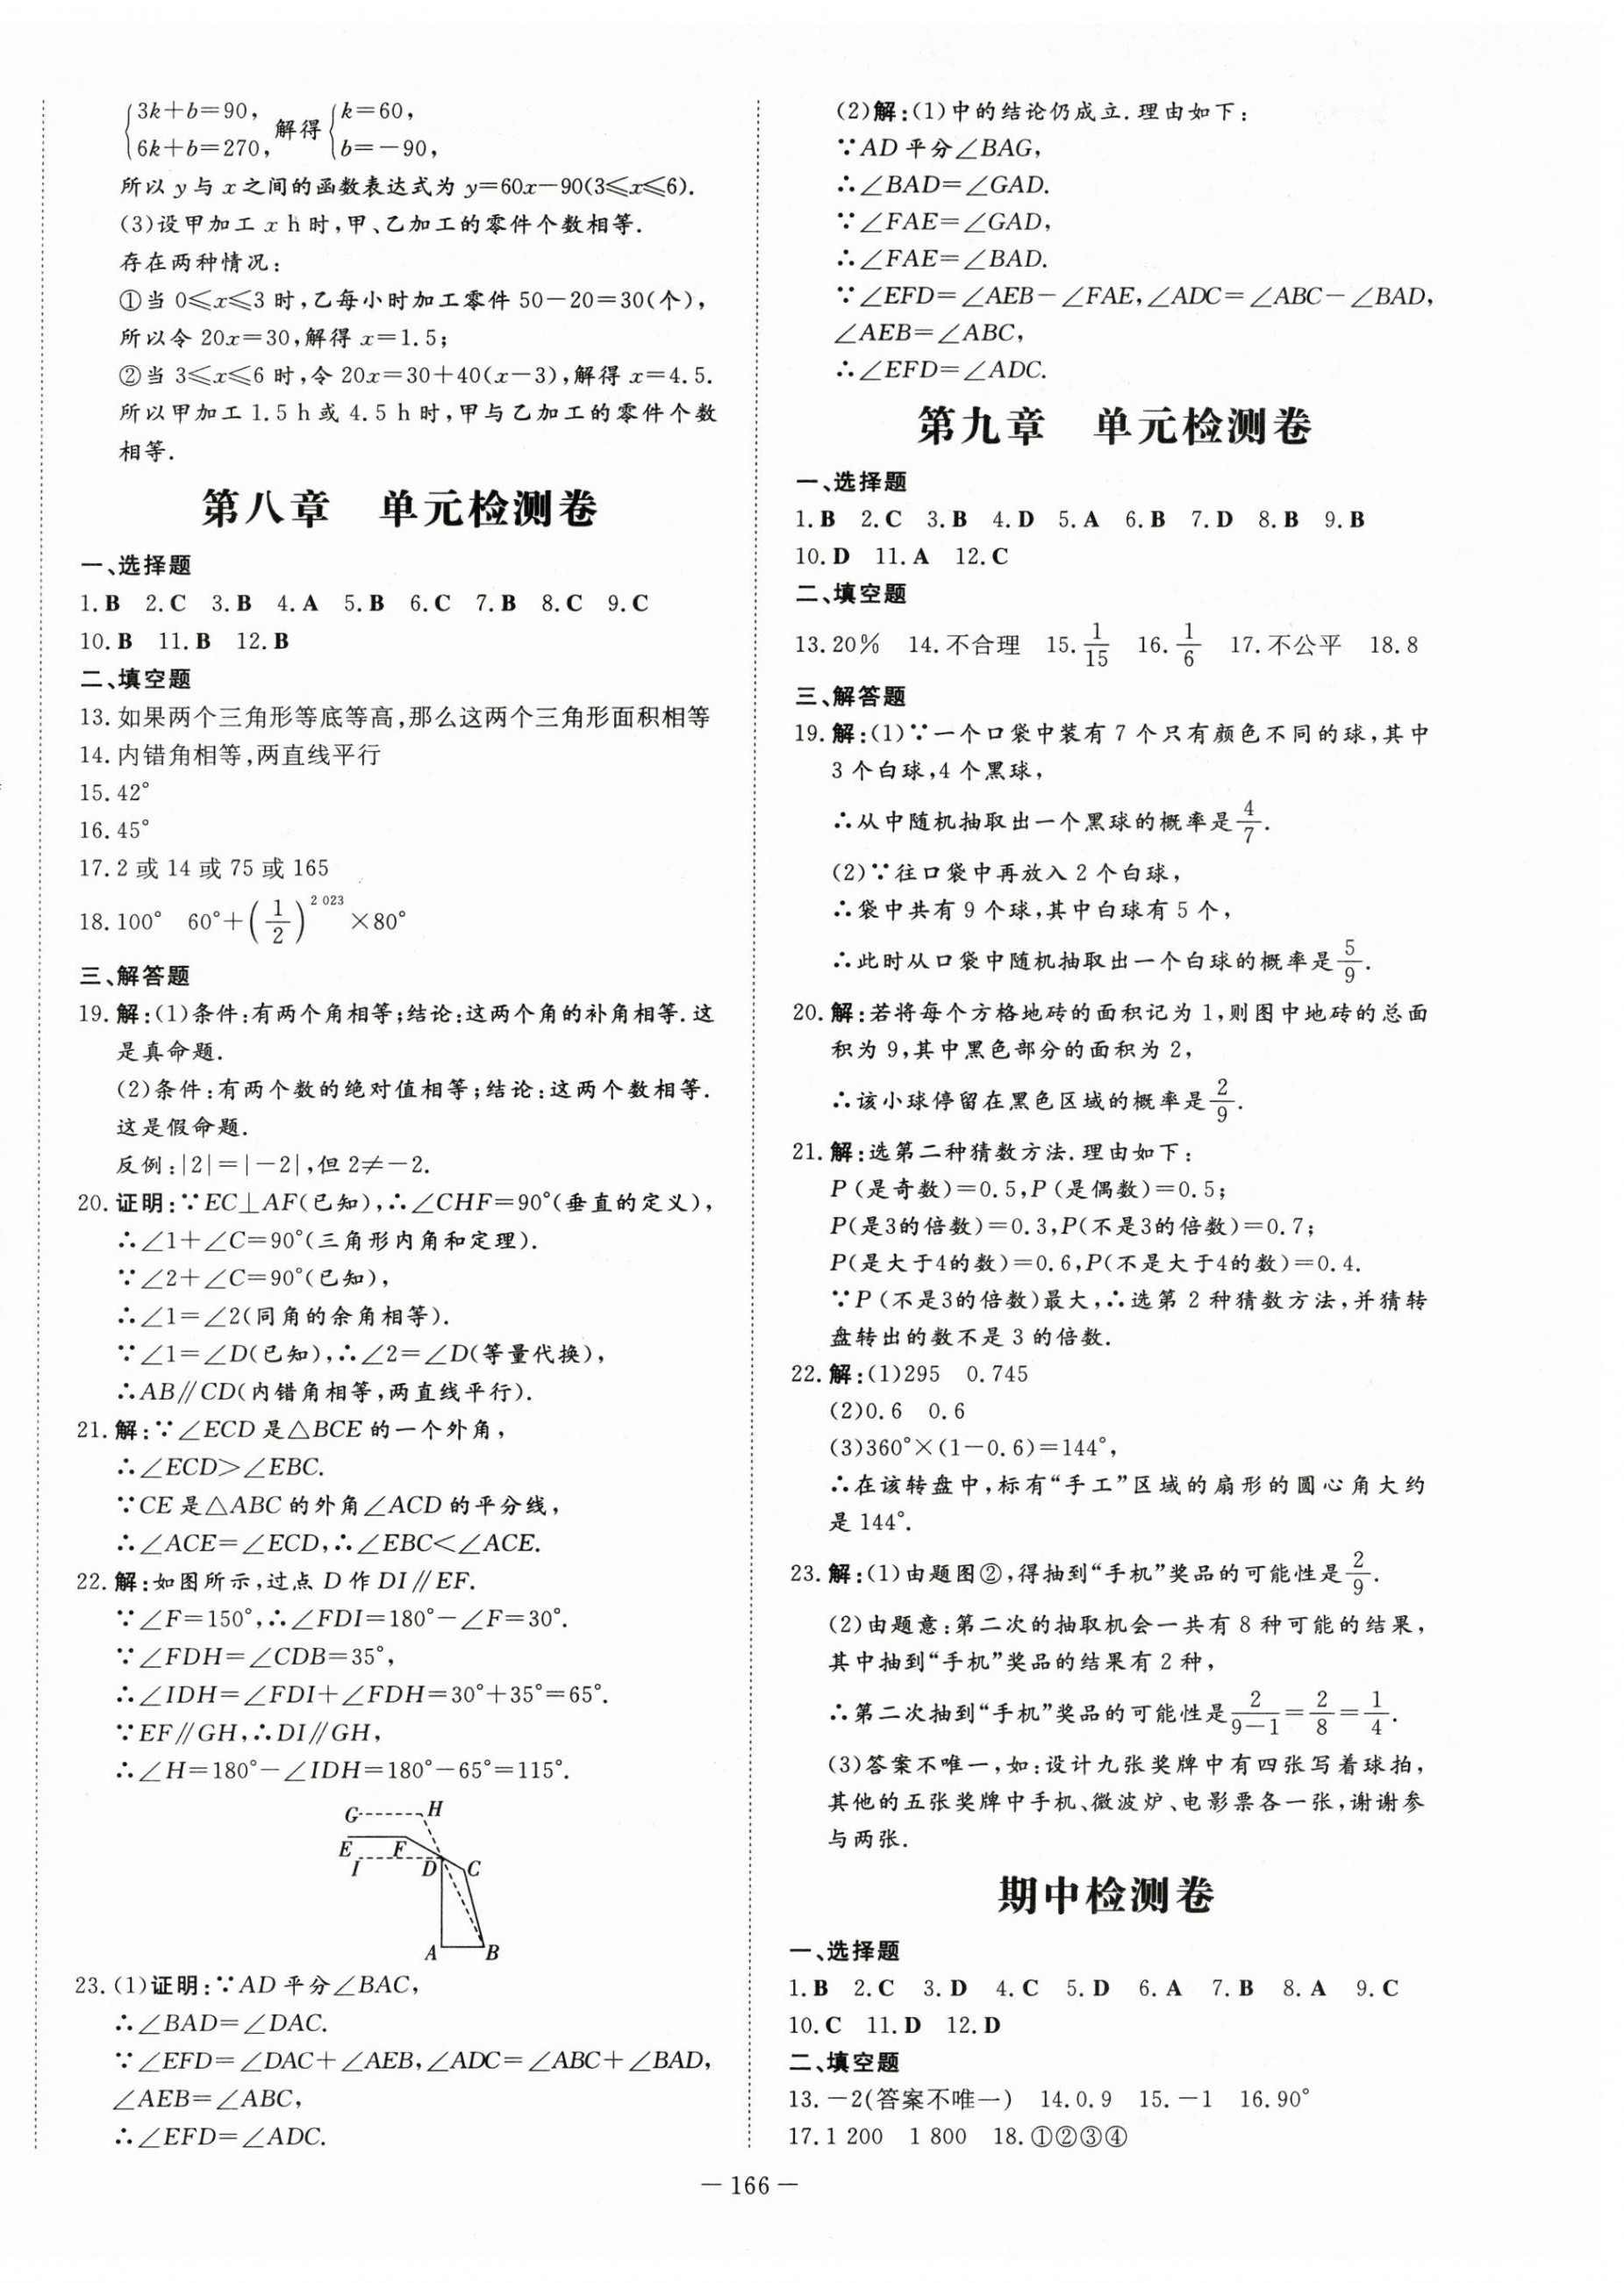 {3k+b=90,
6k+b=270, 解得 {k=60,
b=-90,
所以 y 与 x 之间的函数表达式为 y=60x-90(3≤x≤6).
(3)设甲加工 x h 时,甲、乙加工的零件个数相等.
存在两种情况:
①当 0≤x≤3 时,乙每小时加工零件 50-20=30(个),
所以令 20x=30,解得 x=1.5;
②当 3≤x≤6 时,令 20x=30+40(x-3),解得 x=4.5.
所以甲加工 1.5 h 或 4.5 h 时,甲与乙加工的零件个数
相等.
第八章 单元检测卷
一、选择题
1.B 2.C 3.B 4.A 5.B 6.C 7.B 8.C 9.C
10.B 11.B 12.B
二、填空题
13.如果两个三角形等底等高,那么这两个三角形面积相等
14.内错角相等,两直线平行
15.42°
16.45°
17.2 或 14 或 75 或 165
18.100° 60°+(1/2)^2 023×80°
三、解答题
19.解:(1)条件:有两个角相等;结论:这两个角的补角相等.这
是真命题.
(2)条件:有两个数的绝对值相等;结论:这两个数相等.
这是假命题.
反例:|2|=|-2|,但 2≠-2.
20.证明:∵EC⊥AF(已知),∴∠CHF=90°(垂直的定义),
∴∠1+∠C=90°(三角形内角和定理).
∵∠2+∠C=90°(已知),
∴∠1=∠2(同角的余角相等).
∵∠1=∠D(已知),∴∠2=∠D(等量代换),
∴AB∥CD(内错角相等,两直线平行).
21.解:∵∠ECD 是△BCE 的一个外角,
∴∠ECD>∠EBC.
∵CE 是△ABC 的外角∠ACD 的平分线,
∴∠ACE=∠ECD,∴∠EBC<∠ACE.
22.解:如图所示,过点 D 作 DI∥EF.
∵∠F=150°,∴∠FDI=180°-∠F=30°.
∵∠FDH=∠CDB=35°,
∴∠IDH=∠FDI+∠FDH=30°+35°=65°.
∵EF∥GH,∴DI∥GH,
∴∠H=180°-∠IDH=180°-65°=115°.
G H
E F
I D C
A B
23.(1)证明:∵AD 平分∠BAC,
∴∠BAD=∠DAC.
∵∠EFD=∠DAC+∠AEB,∠ADC=∠ABC+∠BAD,
∠AEB=∠ABC,
∴∠EFD=∠ADC.
(2)解:(1)中的结论仍成立.理由如下:
∵AD 平分∠BAG,
∴∠BAD=∠GAD.
∵∠FAE=∠GAD,
∴∠FAE=∠BAD.
∵∠EFD=∠AEB-∠FAE,∠ADC=∠ABC-∠BAD,
∠AEB=∠ABC,
∴∠EFD=∠ADC.
第九章 单元检测卷
一、选择题
1.B 2.C 3.B 4.D 5.A 6.B 7.D 8.B 9.B
10.D 11.A 12.C
二、填空题
13.20% 14.不合理 15.1/15 16.1/6 17.不公平 18.8
三、解答题
19.解:(1)∵一个口袋中装有 7 个只有颜色不同的球,其中
3 个白球,4 个黑球,
∴从中随机抽取出一个黑球的概率是4/7.
(2)∵往口袋中再放入 2 个白球,
∴袋中共有 9 个球,其中白球有 5 个,
∴此时从口袋中随机抽取出一个白球的概率是5/9.
20.解:若将每个方格地砖的面积记为 1,则图中地砖的总面
积为 9,其中黑色部分的面积为 2,
∴该小球停留在黑色区域的概率是2/9.
21.解:选第二种猜数方法.理由如下:
P(是奇数)=0.5,P(是偶数)=0.5;
P(是3的倍数)=0.3,P(不是3的倍数)=0.7;
P(是大于4的数)=0.6,P(不是大于4的数)=0.4.
∵P(不是3的倍数)最大,∴选第 2 种猜数方法,并猜转
盘转出的数不是 3 的倍数.
22.解:(1)295 0.745
(2)0.6 0.6
(3)360°×(1-0.6)=144°,
∴在该转盘中,标有“手工”区域的扇形的圆心角大约
是 144°.
23.解:(1)由题图②,得抽到“手机”奖品的可能性是2/9.
(2)由题意:第二次的抽取机会一共有 8 种可能的结果,
其中抽到“手机”奖品的结果有 2 种,
∴第二次抽到“手机”奖品的可能性是2/(9-1)=2/8=1/4.
(3)答案不唯一,如:设计九张奖牌中有四张写着球拍,
其他的五张奖牌中手机、微波炉、电影票各一张,谢谢参
与两张.
期中检测卷
一、选择题
1.B 2.C 3.D 4.C 5.D 6.A 7.B 8.A 9.C
10.C 11.D 12.D
二、填空题
13.-2(答案不唯一) 14.0.9 15.-1 16.90°
17.1 200 1 800 18.①②③④
— 166 —